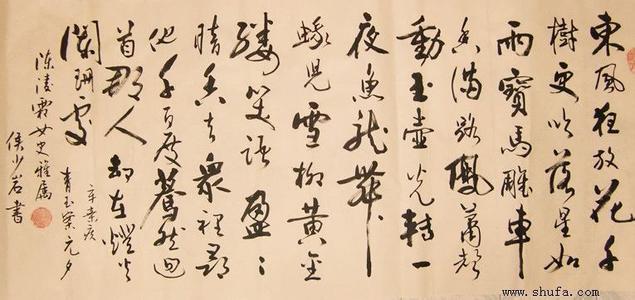 東風狂放花千
樹更吹落星如
雨寶馬雕車
香滿路鳳簫聲
動玉壺光轉一
夜魚龍舞
蛾兒雪柳黃金
縷笑語盈盈
暗香去眾裡尋
他千百度驀然迴
首那人卻在燈火
闌珊處
辛棄疾
青玉案元夕
陈凌霜女史雅属
侯少岩書
www.shufa.com